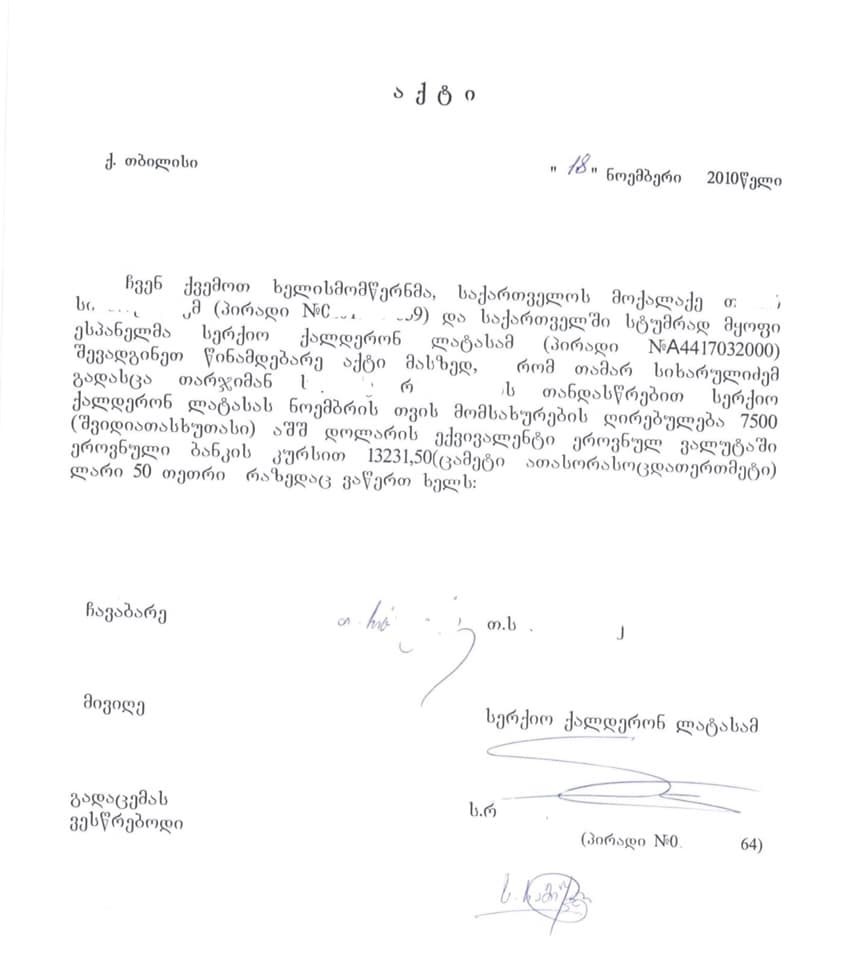 აქტი
ქ. თბილისი
" 18 " ნოემბერი 2010წელი
ჩვენ ქვემოთ ხელისმომწერნმა, საქართველოს მოქალაქე თ:
(პირადი №C 9) და საქართველში სტუმრად მყოფი
ესპანელმა სერქიო ქალდერონ ლატასამ (პირადი №A4417032000)
შევადგინეთ წინამდებარე აქტი მასზედ, რომ თამარ სიხარულიძემ
გადასცა თარჯიმან ს რ ს თანდასწრებით სერქიო
ქალდერონ ლატასას ნოემბრის თვის მომსახურების ღირებულება 7500
(შვიდიათასხუთასი) აშშ დოლარის ექვივალენტი ეროვნულ ვალუტაში
ეროვნული ბანკის კურსით 13231,50(ცამეტი ათასორასოცდათერთმეტი)
ლარი 50 თეთრი რაზედაც ვაწერთ ხელს:
ჩავაბარე თ.ს
მივიღე
სერქიო ქალდერონ ლატასამ
გადაცემას
ვესწრებოდი
ს.რ
(პირადი №0 64)